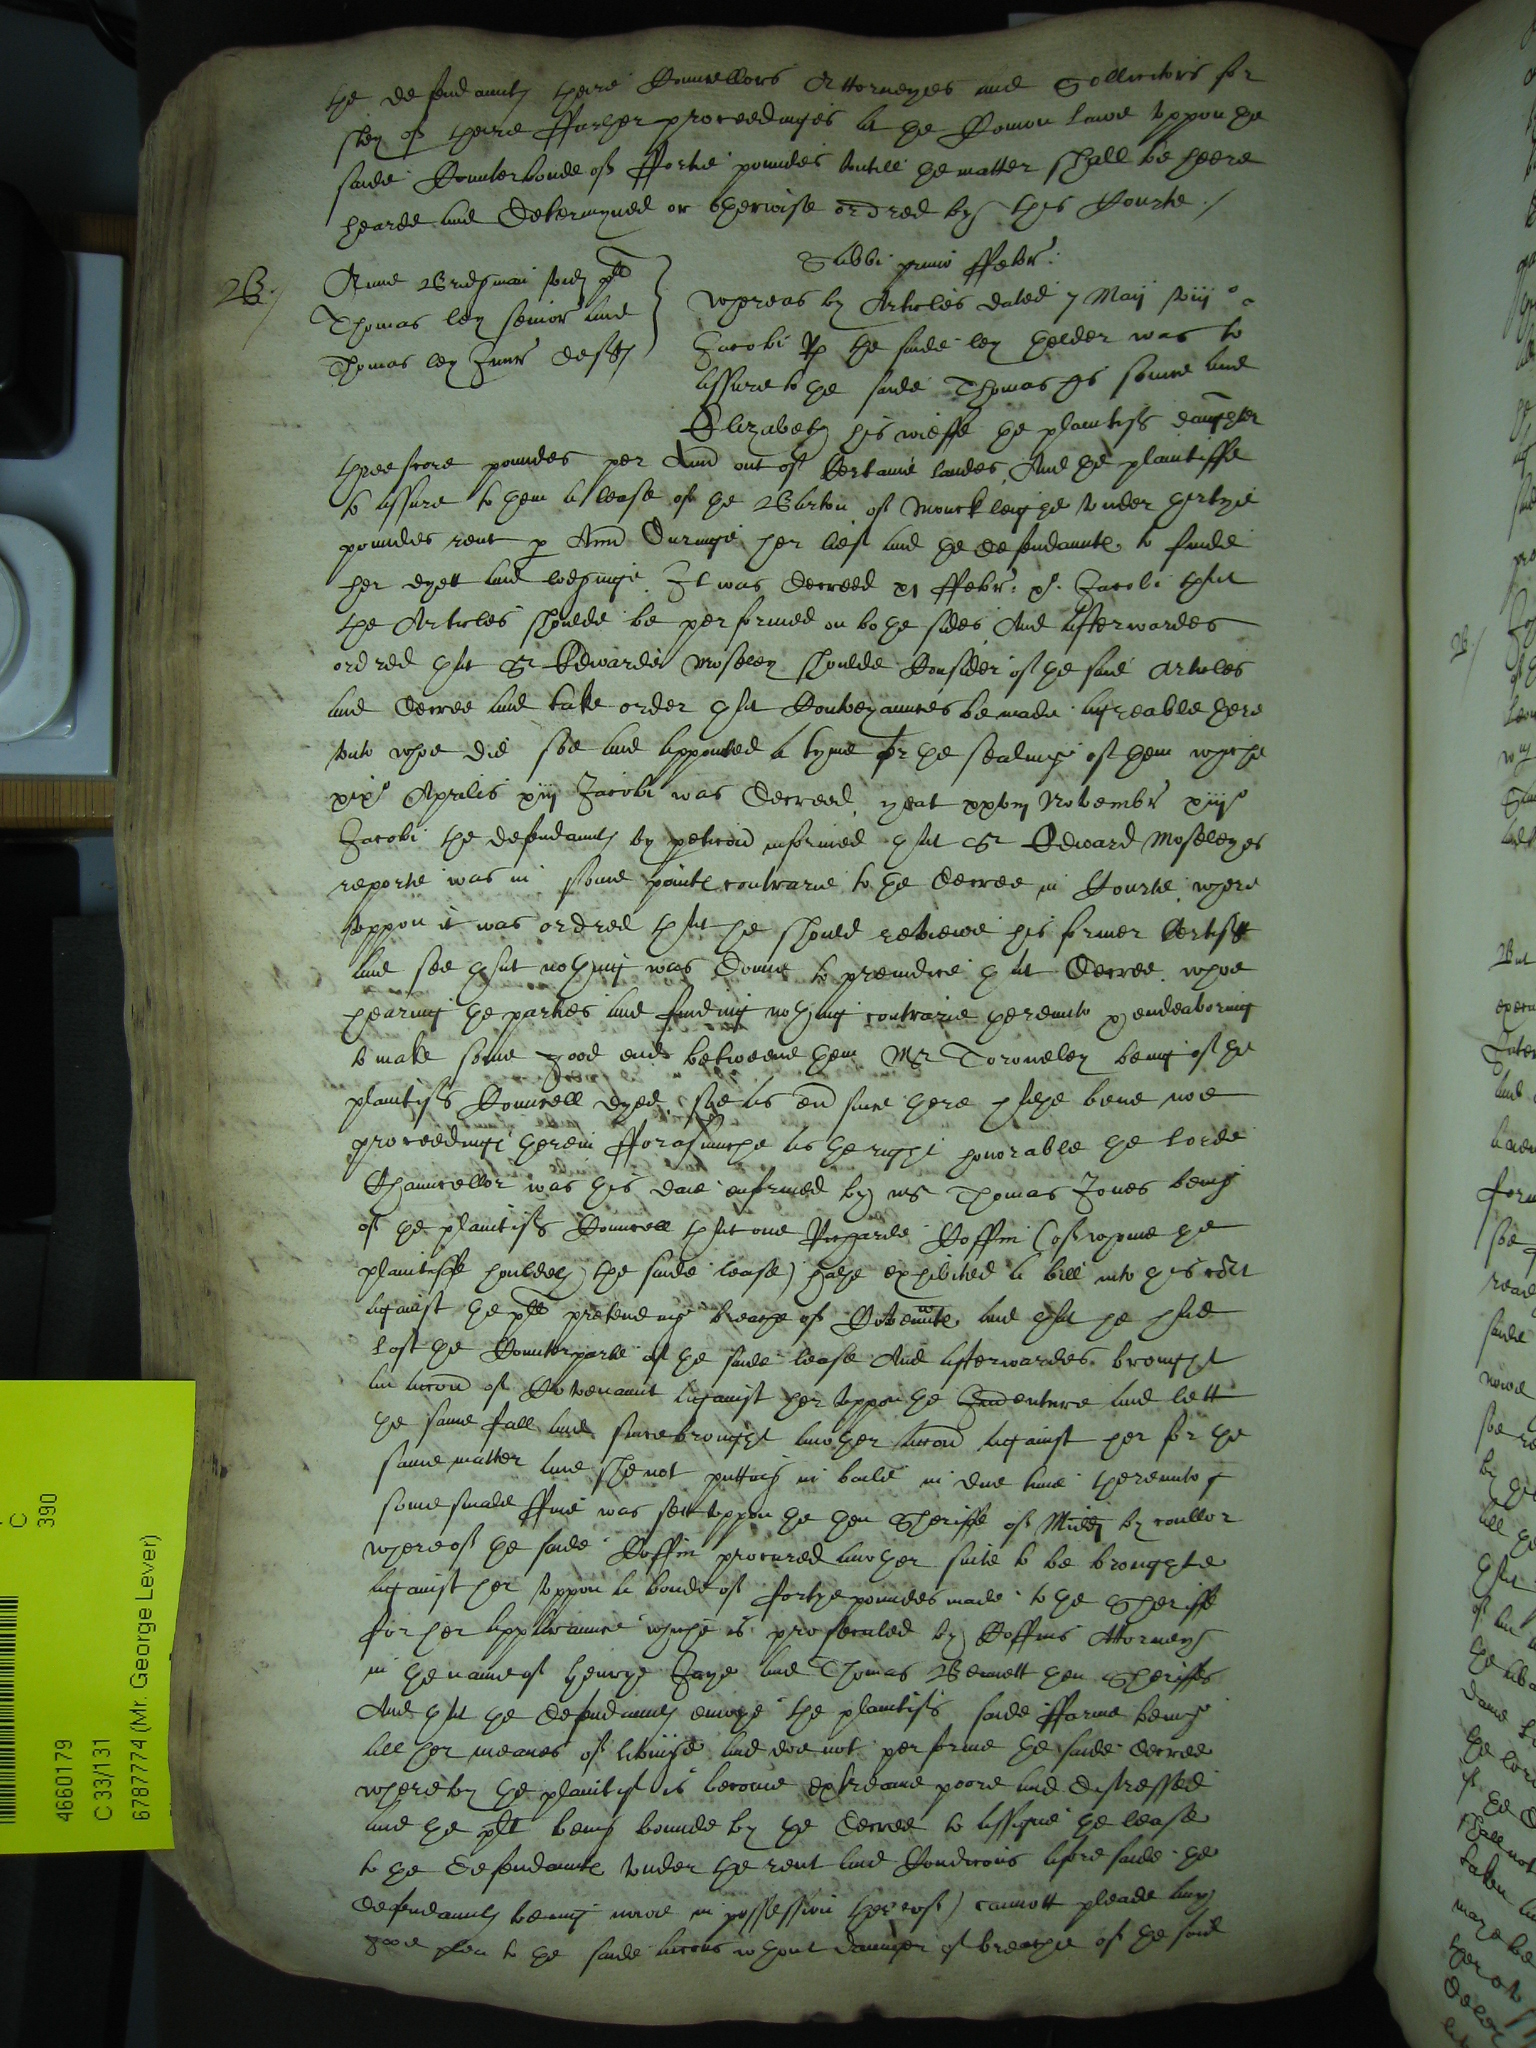 the defendaunts theire Councellors Attorneyes and Sollicitors for
stey of theire ffurther proceedinges at the Comon lawe uppon the
saide Counterbonde of ffortie poundes untill the matter shall be heere
hearde and determyned or otherwise ordred by this Courte ./
B ./
Anne Bridgman wid plt
Thomas ley senior and
Thomas ley Junr deftes
Sabbi primo ffebr:
Whereas by Articles dated 7 Maij xiij o
Jacobi Rs the saide ley thelder was to
assure to the saide Thomas his sonne and
Elizabeth his wieffe the plaintifs daughter
threescore poundes per Ann out of Certaine landes And the plaintiffe
to assure to them a lease of the Barton of Monckleighe under thirtye
poundes rent p Ann duringe her lief and the defendauntes to finde
her dyett and lodginge. It was decreed xi ffebr: po Jacobi that
the Articles shoulde be performed on bothe sides And afterwardes
ordred that Sr Edwarde Moseley shoulde Consider of the said Articles
and decree and take order that Conveyaunces be made agreable there
unto whoe did soe and appointed a tyme for the sealinge of them which
xixo Aprilis xiij Jacobi was decreed, yeat xxvij Novembr xiijo
Jacobi the defendaunts by peticion informed that Sr Edward Moseleyes
reporte was in some pointes contrarie to the decree in Courte where
uppon it was ordred that he should reviewe his former Certifct
and see that nothing was donne to preiudice that decree, whoe
hearing the parties and finding nothing contrarie thereunto & endeavoring
to make some good ende betweene them Mr Towneley being of the
plaintifs Councell dyed, soe as ever since there hathe bene noe
proceedinge therein fforasmuche as the right honorable the lorde
Chauncellor was this daie enformed by Mr Thomas Jones being
of the plaintifs Councell that one Richarde Coffin (of whome the
plaintiffe houldeth the saide lease) hathe exhibited a bill into this Court
against the plt pretending breache of Covenntes and that he had
lost the Counterparte of the saide lease And afterwardes brought
an accon of Covenannt against her uppon the Indenture and lett
the same fall and since brought another accon against her for the
same matter and she not putting in baile in due time thereunto
some smale ffine was sett uppon the then Sheriffe of Midd by coullor
whereof the saide Coffin procured another suite to be broughte
against her uppon a bonde of fortye poundes made to the Sheriffe
for her appearaunce which is prosecuted by Coffins Attorney
in the name of George Jaye and Thomas Bennett then Sheriffs
And that the defendaunts enioye the plaintifs saide ffarme being
all her meanes of livinge and doe not performe the saide decree
whereby the plaintif is become extreame poore and distressed
and the plt being bounde by the decree to assigne the lease
to the defendauntes under the rent and Condicons aforesaide the
defendaunts beeing nowe in possession thereof) cannott pleade any
good plea to the saide accons without daunger of breache of the said
4660179
C 33/131
6787774 (Mr. George Lever)
C
390
B /